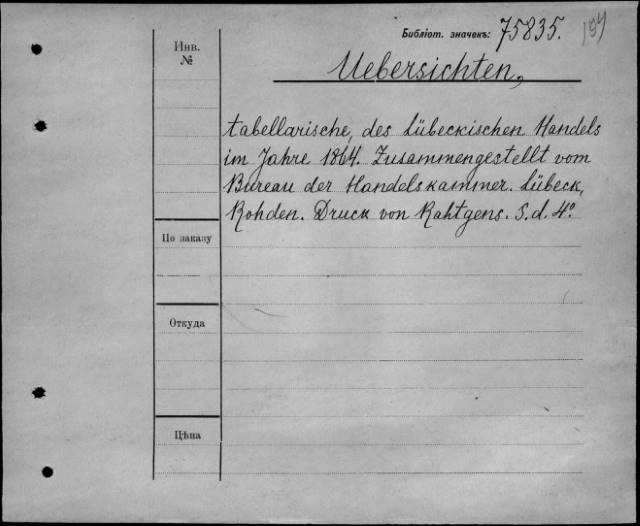 Библіот. значекъ: 75835.
Инв.
№
Uebersichten,
tabellarische, des Lübeckischen Handels
im Jahre 1864. Zusammengestellt vom
Bureau der Handelskammer. Lübeck,
Rohden. Druck von Rahtgens. S. d. 4º
По заказу
Откуда
Цѣна